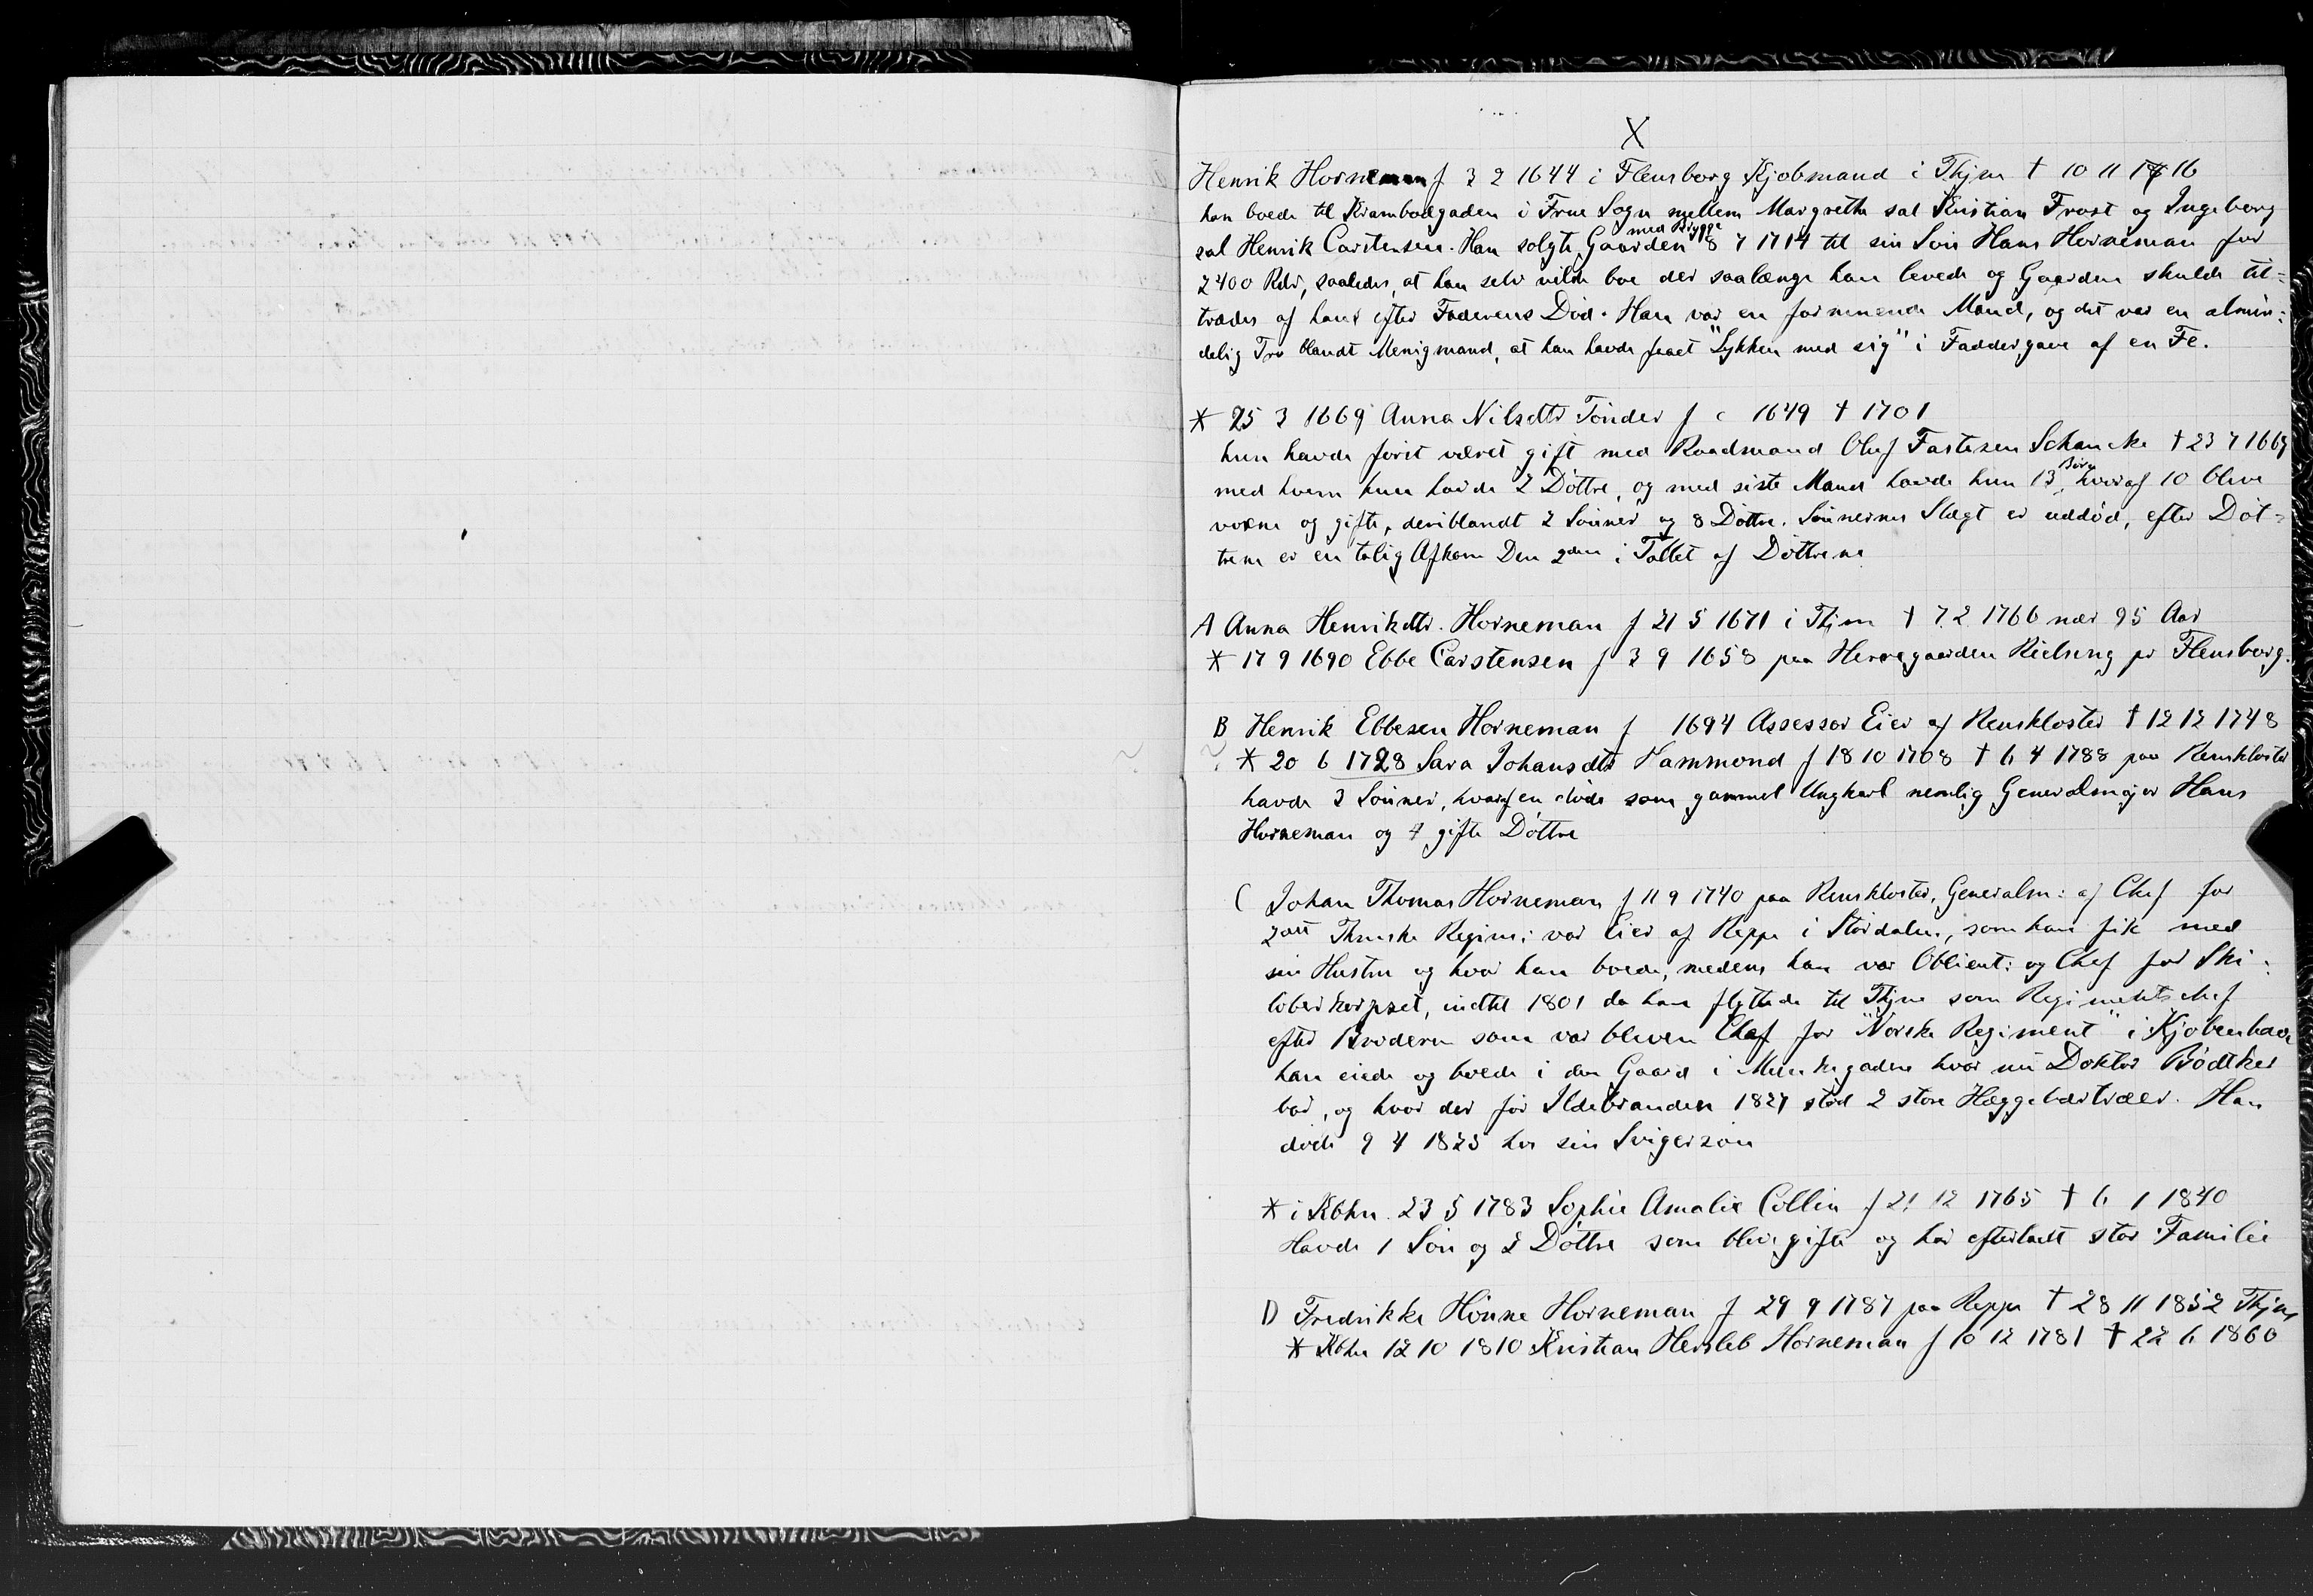 X
Henrik Horneman f 3 2 1644 i Flensborg Kjøbmand i Thjm † 10 11 1716
han boede til Krambodgaden i Frue Sogn mellem Margrethe sal Kristian Frost og Ingeborg
sal Henrik Carstensen. Han solgte Gaarden med Brygge 8 7 1714 til sin Søn Hans Horneman for
2400 Rdr, saaledes, at han selv vilde boe der saalænge han levede og Gaarden skulde til=
trædes af hans efter Faderens Død. Han var en formuende Mand, og det var en almin=
delig Tro blandt Menigmand, at han havde faaet "Lykken med sig" i Faddergave af en Fe.
* 25 3 1669 Anna Nilsdtr Tønder f c 1649 † 1701
hun havde først været gift med Raadmand Oluf Fastesen Schancke † 23 7 1669
med hvem hun havde 2 Døttre, og med siste Mand havde hun 13 Børn hvoraf 10 bleve
voxne og gifte, deriblandt 2 Sønner og 8 Døttre. Sønnernes Slægt er uddød, efter Døt=
trene er en talrig Afkom Den 2den i Tallet af Døttrene
A Anna Henrikdtr. Horneman f 21 5 1671 i Thjm † 7 2 1766 nær 95 Aar
* 17 9 1690 Ebbe Carstensen f 3 9 1658 paa Herregaarden Rielseng pr Flensborg.
B Henrik Ebbesen Horneman f 1694 Assessor Eier af Reinskloster † 12 12 1748
* 20 6 1728 Sara Johansdtr Hammond f 18 10 1708 † 6 4 1788 paa Reinskloster
havde 3 Sønner, hvoraf en døde som gammel Ungkarl nemlig Generalmajor Hans
Horneman og 4 gifte Døttre
C Johan Thomas Horneman f 11 9 1740 paa Reinskloster, Generalm: og Chef for
2det Thrnske Regim: var Eier af Reppe i Størdalen, som han fik med
sin Hustru og hvor han boede, medens han var Oblieut: og Chef for Ski=
løberkorpset, indtil 1801 da han flyttede til Thjm som Regimentschef
efter Broderen som var bleven Chef for "Norske Regiment" i Kjøbenhavn
han eiede og boede i den Gaard i Munkegaden hvor nu Doktor Bødtker
bor, og hvor der før Ildebranden 1827 stod 2 store Hæggebærtræer. Han
døde 9 4 1825 hos sin Svigersøn
* i Kbhn. 23 5 1783 Sophie Amalie Collin f 21 12 1765 † 6 1 1840
Havde 1 Søn og 2 Døttre som bleve gifte og har efterladt stor Familie
D Fredrikke Hönne Horneman f 29 9 1787 paa Reppe † 28 11 1852 Thjm
* Kbhn 12 10 1810 Kristian Hersleb Horneman f 10 12 1781 † 22 6 1860